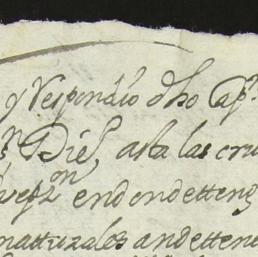 y Respondio dho Cap.n
Diel, asta las cru
en donde tteng
natturales an de ttene